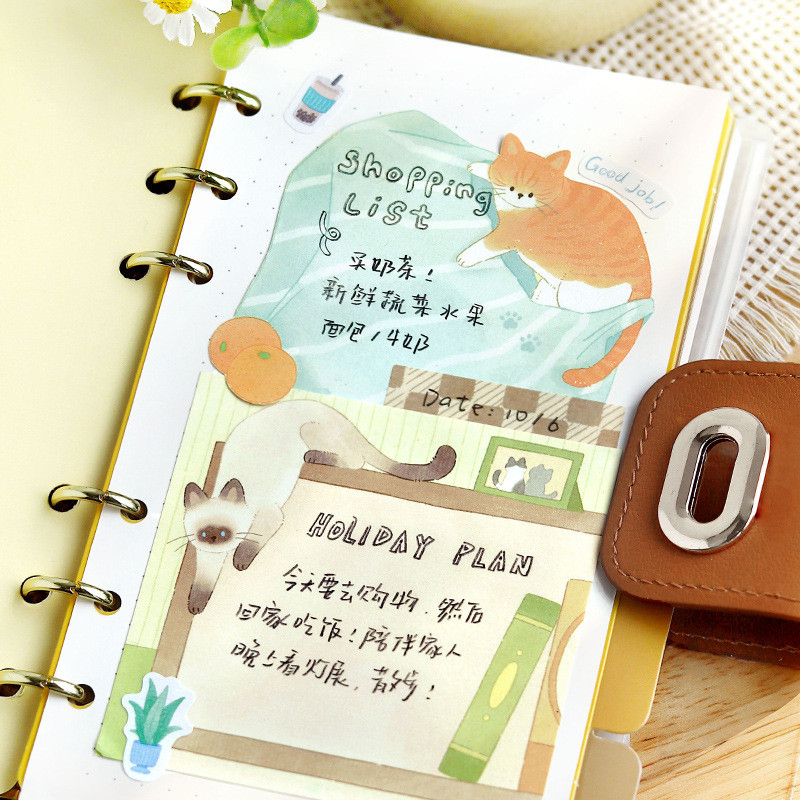 Good job!
Shopping
List
采奶茶!
新鲜蔬菜水果
面包/牛奶
Date: 10/6
HOLIDAY PLAN
今天要去购物,然后
回家吃饭!陪伴家人
晚上看灯展,散步!